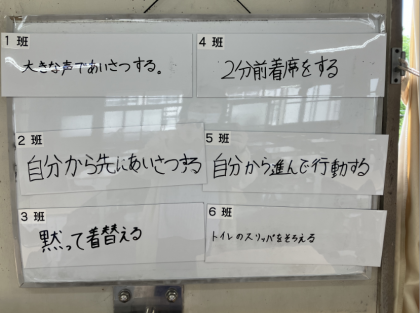 1 班
大きな声であいさつする。
2 班
自分から先にあいさつする
3 班
黙って着替える
4 班
2分前着席をする
5 班
自分から進んで行動する
6 班
トイレのスリッパをそろえる